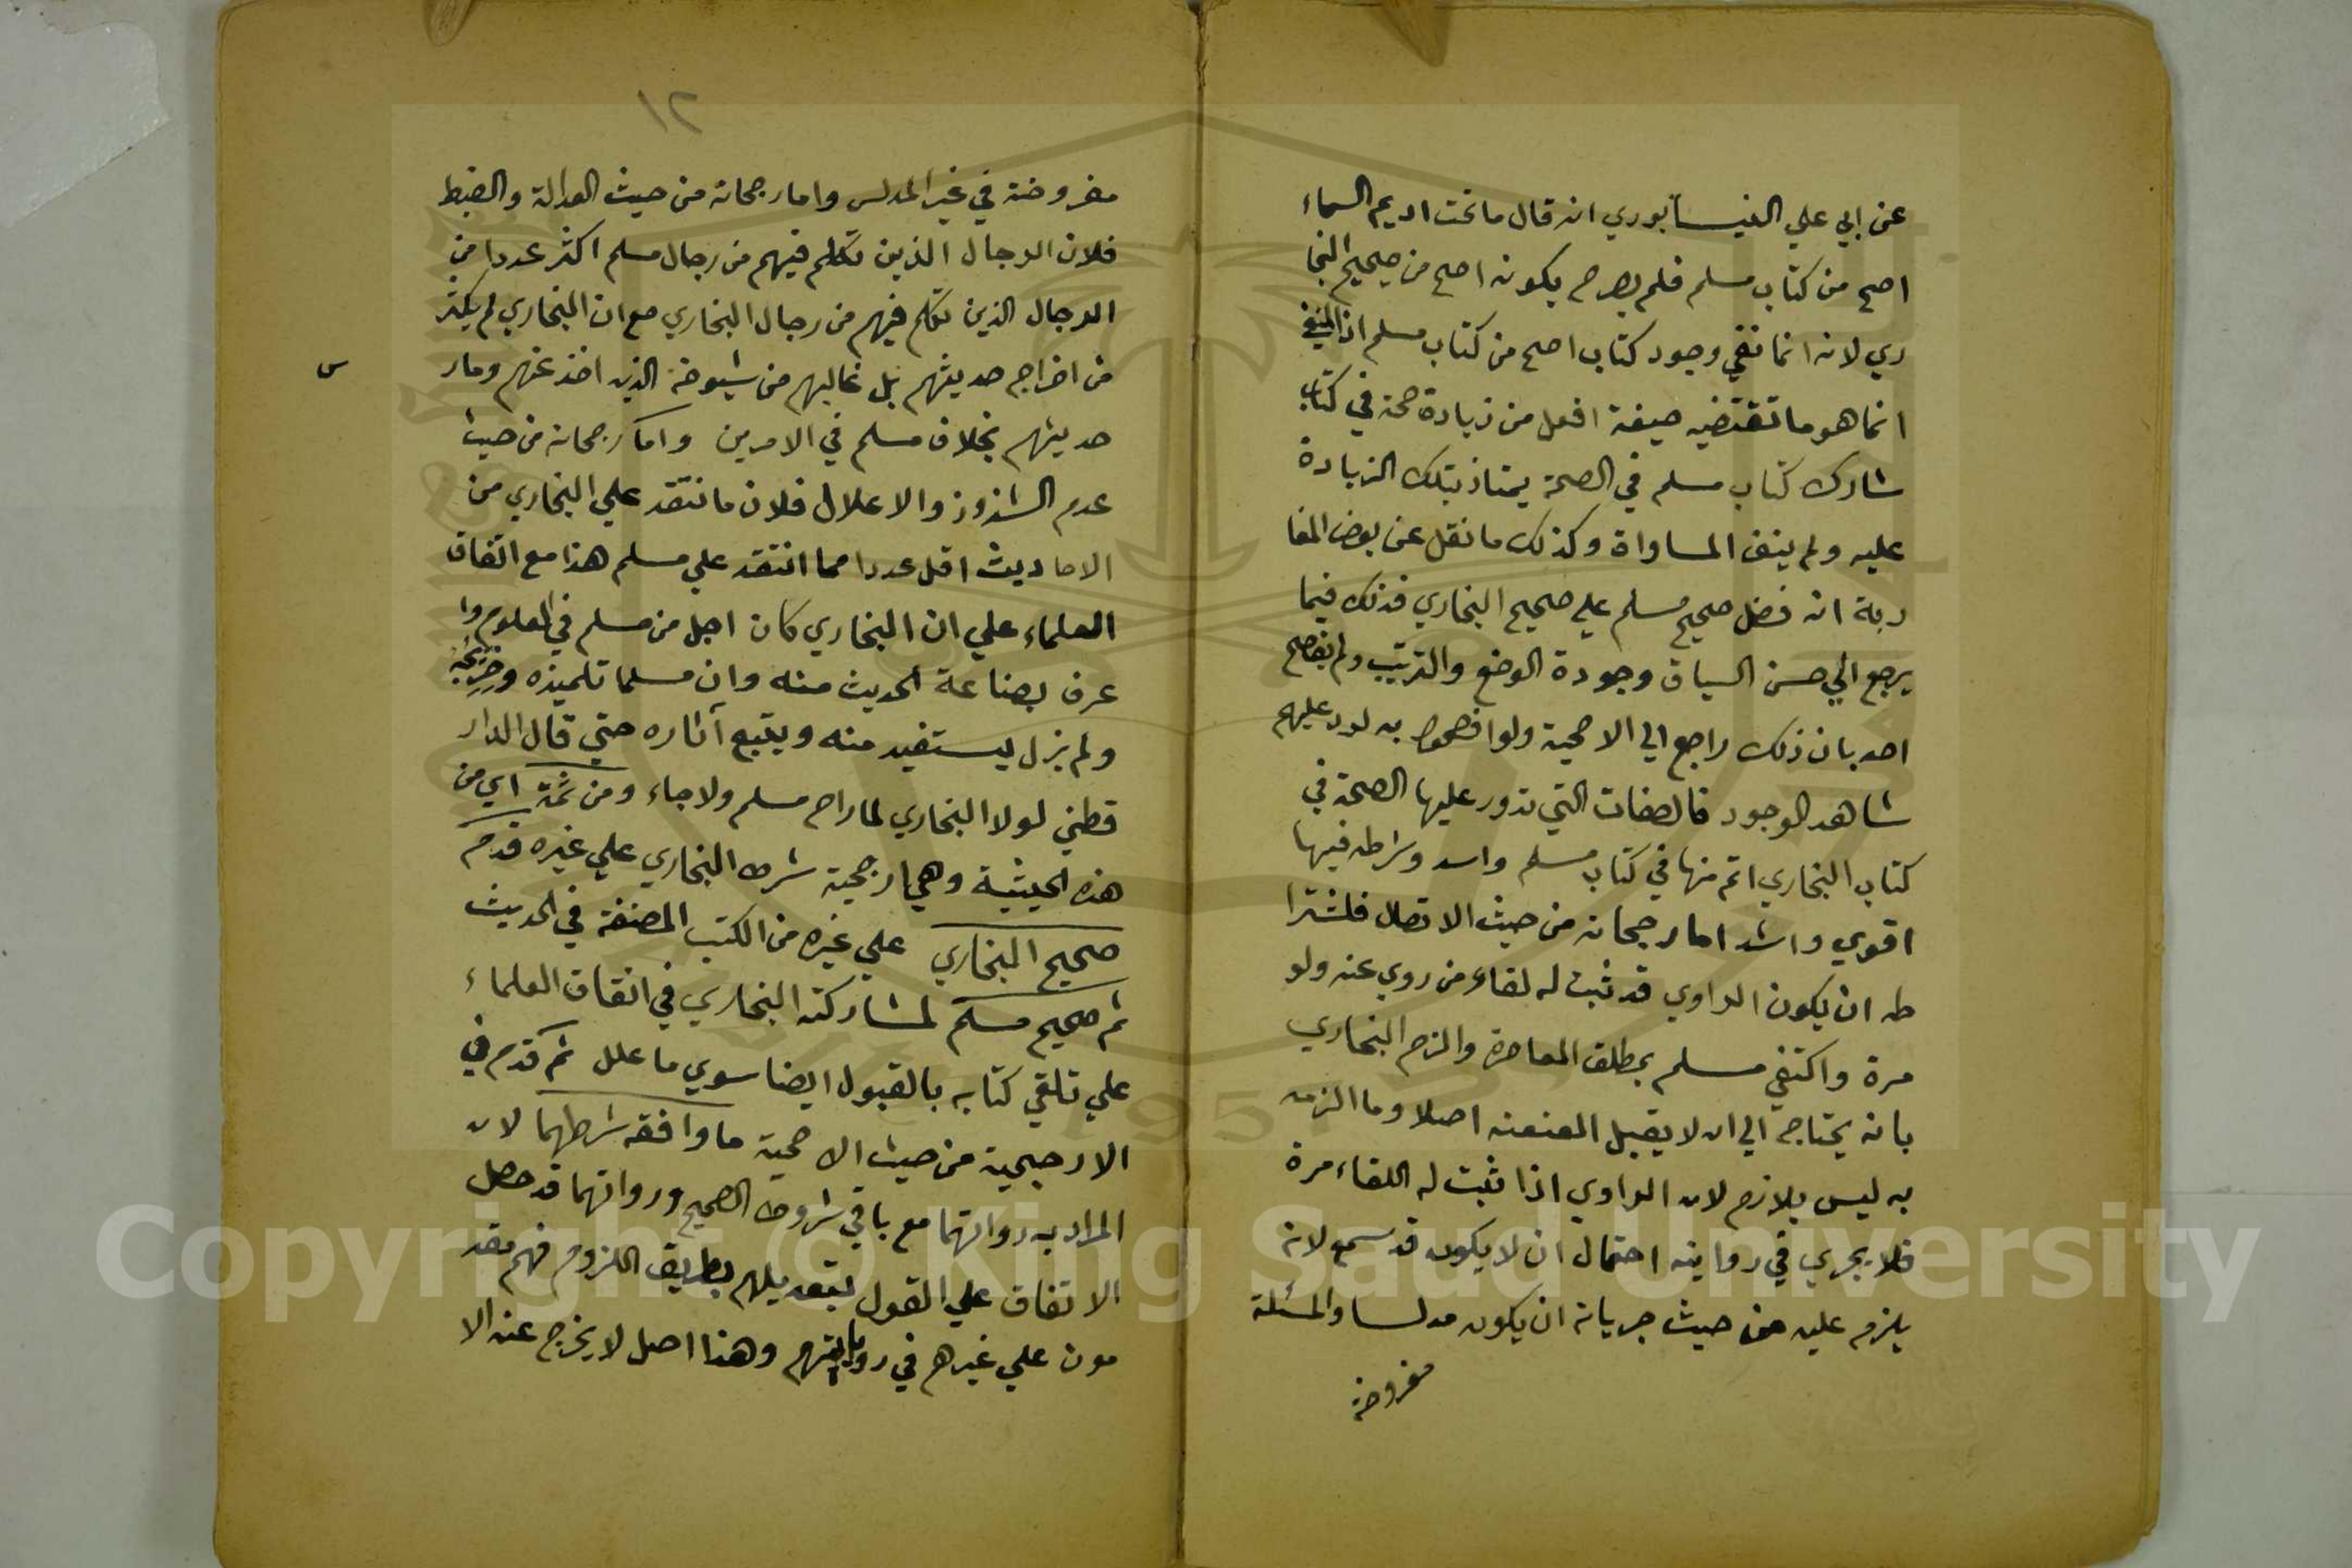 عن ابي علي النيسابوري انه قال ما تحت اديم السماء
اصح من كتاب مسلم فلم يصرح بكونه اصح من صحيح البخا
ري لانه انما نفي وجود كتاب اصح من كتاب مسلم اذ المنفي
انما هو ما تقتضيه صيغة افعل من زيادة صحة في كتاب
شارك كتاب مسلم في الصحة يمتاز بتلك الزيادة
عليه ولم ينف المساواة وكذلك ما نقل عن بعض المغا
ربة انه فضل صحيح مسلم علي صحيح البخاري فذلك فيما
يرجع الي حسن السياق وجودة الوضع والترتيب ولم يفصح
احد بان ذلك راجع الي الاصحية ولو افصحوا به لرد عليهم
شاهد الوجود فالصفات التي تدور عليها الصحة في
كتاب البخاري اتم منها في كتاب مسلم واسد وشرطه فيها
اقوي واشد اما رجحانه من حيث الاتصال فلشترا
طه ان يكون الراوي قد ثبت له لقاء من روي عنه ولو
مرة واكتفي مسلم بمطلق المعاصرة والزم البخاري
بانه يحتاج الي ان لا يقبل العنعنه اصلا وما الزمه
به ليس بلازم لان الراوي اذا ثبت له اللقاء مرة
فلا يجري في روايته احتمال ان لا يكون قد سمع لانه
يلزم عليه من حيث جريانه ان يكون مدلسا والمسئلة
مفروضة
١٢
مفروضة في غير المدلس واما رجحانه من حيث العدالة والضبط
فلان الرجال الذين تكلم فيهم من رجال مسلم اكثر عددا من
الرجال الذين تكلم فيهم من رجال البخاري مع ان البخاري لم يكثر
من اخراج حديثهم بل غالبهم من شيوخه الذين اخذ عنهم ومار
س
حديثهم بخلاف مسلم في الامرين واما رجحانه من حيث
عدم الشذوذ والاعلال فلان ما نتقد علي البخاري من
الاحاديث اقل عددا مما انتقد علي مسلم هذا مع اتفاق
العلماء علي ان البخاري كان اجل من مسلم في العلوم وا
عرف بصناعة الحديث منه وان مسلما تلميذه وخريجه
ولم يزل يستفيد منه ويتبع آثاره حتي قال الدار
قطني لولا البخاري لما راح مسلم ولا جاء ومن ثمة اي من
هذه الحيثية وهي ارجحية شرط البخاري علي غيره قدم
صحيح البخاري علي غيره من الكتب المصنفة في الحديث
ثم صحيح مسلم لمشاركته البخاري في اتفاق العلماء
علي تلقي كتابه بالقبول ايضا سوي ما علل ثم قدم في
الارجحية من حيث الاصحية ما وافقه شرطهما لان
المراد به رواتهما مع باقي شروط الصحيح ورواتهما قد حصل
الاتفاق علي القول بتعديلهم بطريق اللزوم فهم مقد
مون علي غيرهم في رواياتهم وهذا اصل لا يخرج عنه الا
Copyright © King Saud University
1957